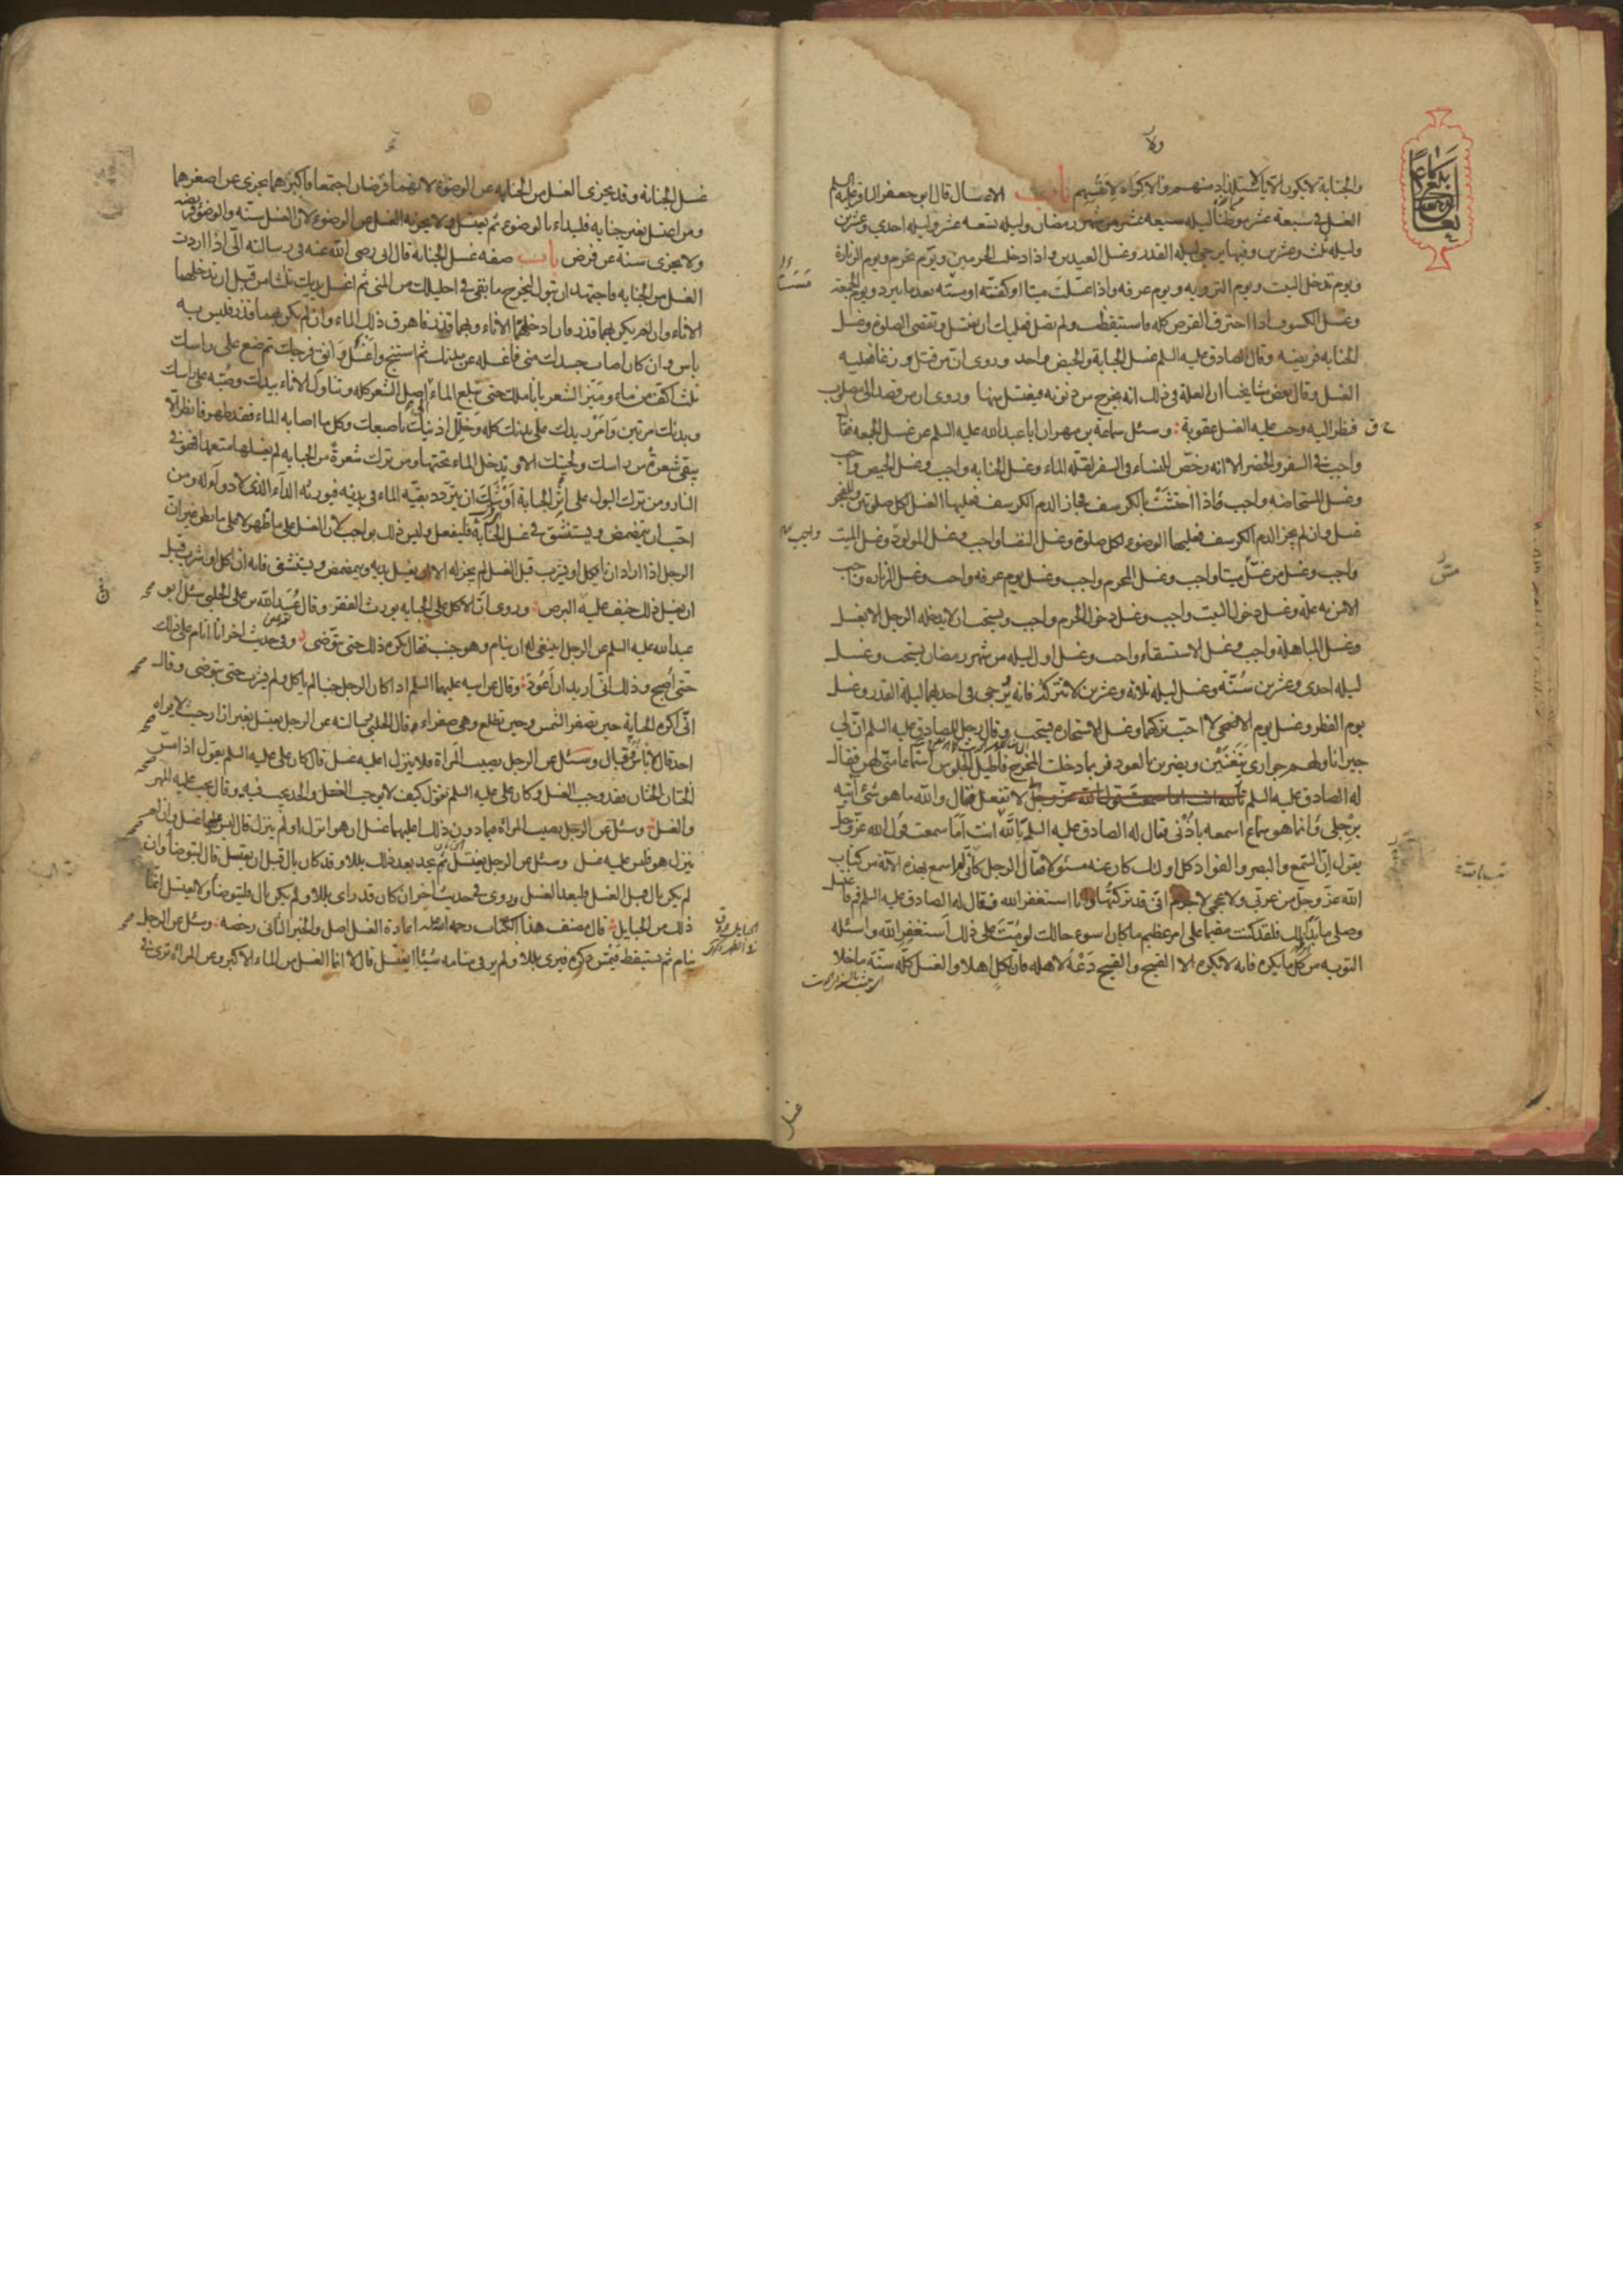 والجنابة لا تكون الا بالاستلذاذ منهم والاكراه لانفسهم باب الاغسال قال ابو جعفر الباقر عليه السلم
الغسل في سبعة عشر موطنا ليله سبعه عشر من شهر رمضان وليله تسعه عشر وليله احدي وعشرين
وليله ثلث وعشرين وفيها يرجى ليله القدر وغسل العيدين واذا دخلت الحرمين ويوم تحرم ويوم الزيارة
ويوم تدخل البيت ويوم الترويه ويوم عرفه واذا غسّلت ميتا او كفنته او مسته بعد ما يبرد ويوم الجمعة
وغسل الكسوف اذا احترق القرص كله فاستيقظت ولم تصل فعليك ان تغتسل وتقضى الصلوة وغسل
الجنابه فريضه وقال الصادق عليه السلم غسل الجنابة والحيض واحد وروى ان من قتل وزغا فعليه
الغسل وقال بعض مشايخنا ان العلة في ذلك انه يخرج من ذنوبه فيغتسل منها وروى ان من قصد الى مصلوب
فنظر اليه وجب عليه الغسل عقوبة وسئل سماعة بن مهران ابا عبدالله عليه السلم عن غسل الجمعه فقال
واجب في السفر والحضر الا انه رخص للنساء في السفر لقله الماء وغسل الجنابه واجب وغسل الحيض واجب
وغسل المستحاضه واجب واذا احتشت بالكرسف فجاز الدم الكرسف فعليها الغسل لكل صلوتين وللفجر
غسل وان لم يجز الدم الكرسف فعليها الوضوء لكل صلوة وغسل النفساء واجب وغسل المولود وغسل الميت
واجب وغسل من غسّل ميتا واجب وغسل المحرم واجب وغسل يوم عرفه واجب وغسل الزياره واجب
الا من به علة وغسل دخول البيت واجب وغسل دخول الحرم واجب ويستحب ان لا يدخله الرجل الا بغسل
وغسل المباهله واجب وغسل الاستسقاء واجب وغسل اول ليله من شهر رمضان يستحب وغسل
ليله احدى وعشرين سنّه وغسل ليله ثلاثه وعشرين لا تتركه فانه يرجى في احديهما ليلة القدر وغسل
يوم الفطر وغسل يوم الاضحى لا احب تركهما وغسل الاستخاره يستحب وقال رجل للصادق عليه السلم ان لي
جيرانا ولهم جوارى يتغنّين ويضربن بالعود فربما دخلت المخرج فاطيل الجلوس استماعا منّي لهن فقال
له الصادق عليه السلم لا تفعل فقال والله ما هو شئ آتيه
برجلى وانما هو سماع اسمعه باذني فقال له الصادق عليه السلم تالله انت اما سمعت قول الله عز وجل
يقول انّ السمع والبصر والفواد كل اولئك كان عنه مسئولا فقال الرجل كانّى لم اسمع بهذه الآية من كتاب
الله عز وجل من عربّي ولا عجمي لا جرم انى قد تركتها وانا استغفر الله فقال له الصادق عليه السلم قم فاغتسل
وصلى ما بدا لك فلقد كنت مقيما على امر عظيم ما كان اسوء حالك لو متّ على ذلك استغفر الله واسئله
التوبه من كل ما يكره فانه لا يكره الا القبيح والقبيح دعه لاهله فان لكل اهلا والغسل كلّه سنّة ما خلا
غسل
غسل الجنابة وقد يجزى الغسل من الجنابه عن الوضوء لانهما فرضان اجتمعا فاكبرهما يجزى عن اصغرهما
ومن اغتسل بغير جنابه فليبداء بالوضوء ثم يغتسل ولا يجزيه الغسل عن الوضوء لان الغسل سنه والوضوء فريضه
ولا يجزى سنة عن فرض باب صفه غسل الجنابة قال ابى رضى الله عنه في رسالته الىّ اذا اردت
الغسل من الجنابه فاجتهد ان تبول ليخرج ما بقى في احليلك من المنى ثم اغسل يديك ثلثا من قبل ان تدخلهما
الاناء وان لم يكن بهما قذر فان ادخلتهما الاناء وبهما قذر فاهرق ذلك الماء وان لم يكن بهما قذر فليس به
باس وان كان اصاب جسدك منى فاغسله عن بدنك ثم استنج واغسل وانق فرجك ثم ضع على راسك
ثلث اكف من ماء وميّز الشعر باناملك حتى يبلغ الماء اصل الشعر كله وتناول الاناء بيدك وصبّه على راسك
وبدنك مرتين وامرر يدك على بدنك كله وخلّل اذنيك باصبعيك وكل ما اصابه الماء فقد طهر فانظر الّا
يبقى شعرة من راسك ولحيتك الا و تدخل الماء تحتها ومن ترك شعرة من الجنابه لم يغسلها متعمدا فهو في
النار ومن ترك البول على اثر الجنابة اوشك ان يتردد بقيّه الماء في بدنه فيورثه الداء الذى لا دواء له ومن
احب ان يتمضمض ويستنشق في غسل الجنابة فليفعل وليس ذلك بواجب لان الغسل على ما ظهر لا على ما بطن غير ان
الرجل اذا اراد ان ياكل او يشرب قبل الغسل لم يجز له الا ان يغسل يديه ويتمضمض ويستنشق فانه ان اكل او شرب قبل
ان يفعل ذلك خيف عليه البرص وروى انّ الاكل على الجنابه يورث الفقر وقال عبيدالله بن على الحلبي سئل ابو
عبدالله عليه السلم عن الرجل اينبغى له ان ينام وهو جنب فقال يكره ذلك حتى يتوضى وفي حديث اخر انا انام على ذلك
حتى اصبح وذلك انى اريد ان اعود وقال عن ابيه عليهما السلم اذا كان الرجل جنبا لم ياكل ولم يشرب حتى يتوضى وقال
انّى اكره الجنابة حين تصفر الشمس وحين تطلع وهي صفراء وقال الحلبي سالته عن الرجل يغتسل بغير ازار حيث لا يراه
احد قال لا باس وقال وسئل عن الرجل يصيب المراة فلا ينزل اعليه غسل قال كان على عليه السلم يقول اذا مسّ
الختان الختان فقد وجب الغسل وكان على عليه السلم يقول كيف لا يوجب الغسل والحد يجب فيه وقال يجب عليه المهر
والغسل وسئل عن الرجل يصيب المراة فيما دون ذلك اعليهما غسل ان هو انزل او لم ينزل قال ليس عليها غسل وان لم
ينزل هو فليس عليه غسل وسئل عن الرجل يغتسل ثم يجد بعد ذلك بللا وقد كان بال قبل ان يغتسل قال ليتوضأ وان
لم يكن بال قبل الغسل فليعد الغسل وروى في حديث آخر ان كان قد راى بللا ولم يكن بال فليتوضأ ولا يغتسل انما
ذلك من الحبايل قال مصنف هذا الكتاب رحمه الله اعادة الغسل اصل والخبر الثانى رخصه وسئل عن الرجل
ينام ثم يستيقظ فيمس ذكره فيرى بللا ولم ير في منامه شيئا ايغتسل قال لا انما الغسل من الماء الاكبر وعن المراة ترى في